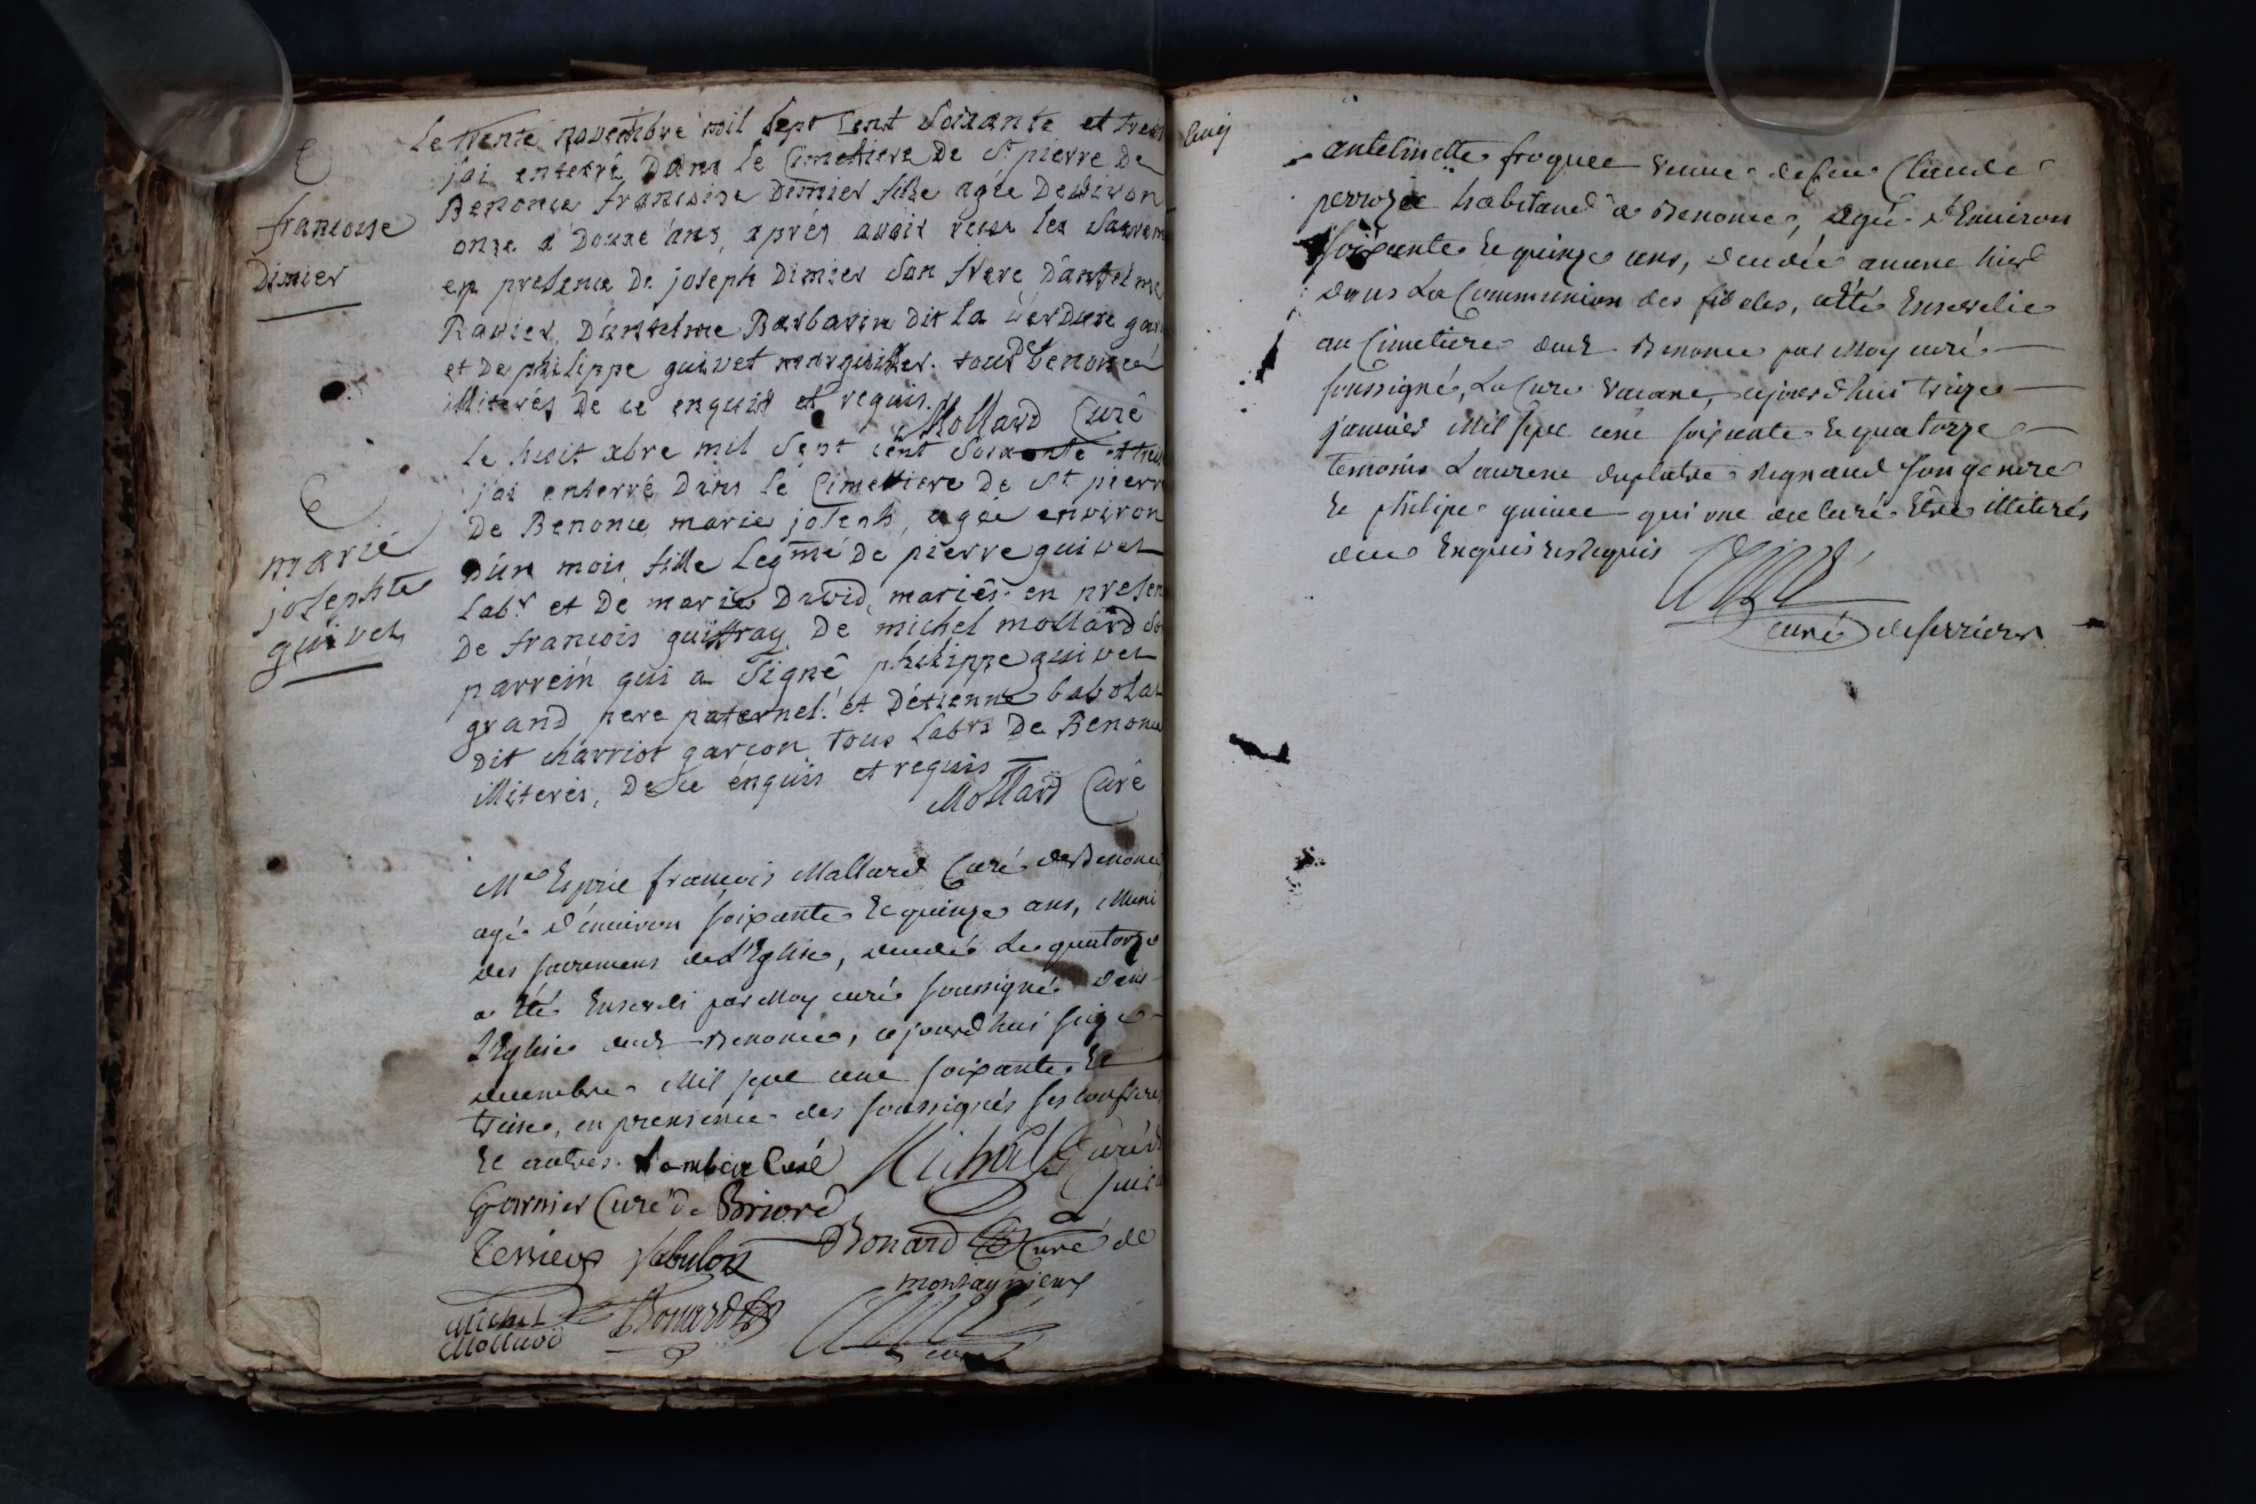 françoise
Dimier
Le trente novembre mil sept Cent Soixante et trei
j'ai enterré Dans le Cimetiere De St pierre De
Benonce francoise Dimier fille agée Denviron
onze a Douze ans, aprés avoir receu les Sacrem
en presence De joseph Dimier Son frere Dantelme
Ravier, D'antelme Barbarin dit la verdure gar
et De philippe guivet marguiller. tous De benonce
illiterés De ce enquis et requis. Mollard Curé
marie
josephte
guivet
Le huit xbre mil Sept cent Soixante et trei
j'ai enterré Dans le Cimettiere De St pierr
De Benonce marie joseph, agée environ
D'un mois, fille Legme De pierre guivet
Labr et De marie David, mariés. en presen
De francois guiffray De michel mollard So
parrein qui a Signé philippe guivet
grand pere paternel. et D'etienne babolat
dit charriot garcon tous Labrs De Benonce
illiterés, De ce enquis et requis
Mollard Curé
Me Esprit françois Mallard Curé de Benonce
agé d'environ soixante et quinze ans, Muni
des sacremens de L'Eglise, decedé Le quatorze
a été Enseveli par Moy curé soussigné dans
L'Eglise dud Benonce, cejourd'hui seize
decembre Mil sept cent soixante Et
treize, en presence des soussignés ses confreres
Et autres. Curé Michel Curé d
Garnier Curé de Briord
Tenieux Bonard Curé de
montagnieux
Michel
Mollard Bonard
curé
antelmette froquet veuve de feu Claude
perrozet habitant a Benonce, agée d'Environ
soixante et quinze ans, decedée avant hier
dans La Communion des fideles, a été Ensevelie
au Cimetiere dud Benonce par Moy curé
soussigné, La Cure vacante, cejourd'hui treize
janvier Mil sept cent soixante et quatorze
temoins Laurent duplatre Regnaud son gendre
Et philipe guivet qui ont declaré Etre illiterés
de ce Enquis et Requis
curé de serrieres